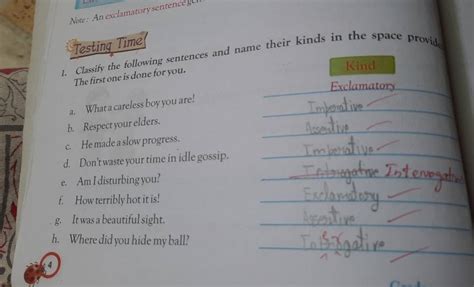 Note : An exclamatory sentence
Testing Time!
1. Classify the following sentences and name their kinds in the space provide
The first one is done for you.
Kind
a. What a careless boy you are! Exclamatory
b. Respect your elders. Imperative
c. He made a slow progress. Assertive
d. Don't waste your time in idle gossip. Imperative
e. Am I disturbing you? Intrugative Interrogative
f. How terribly hot it is! Exclamatory
g. It was a beautiful sight. Assertive
h. Where did you hide my ball?
4